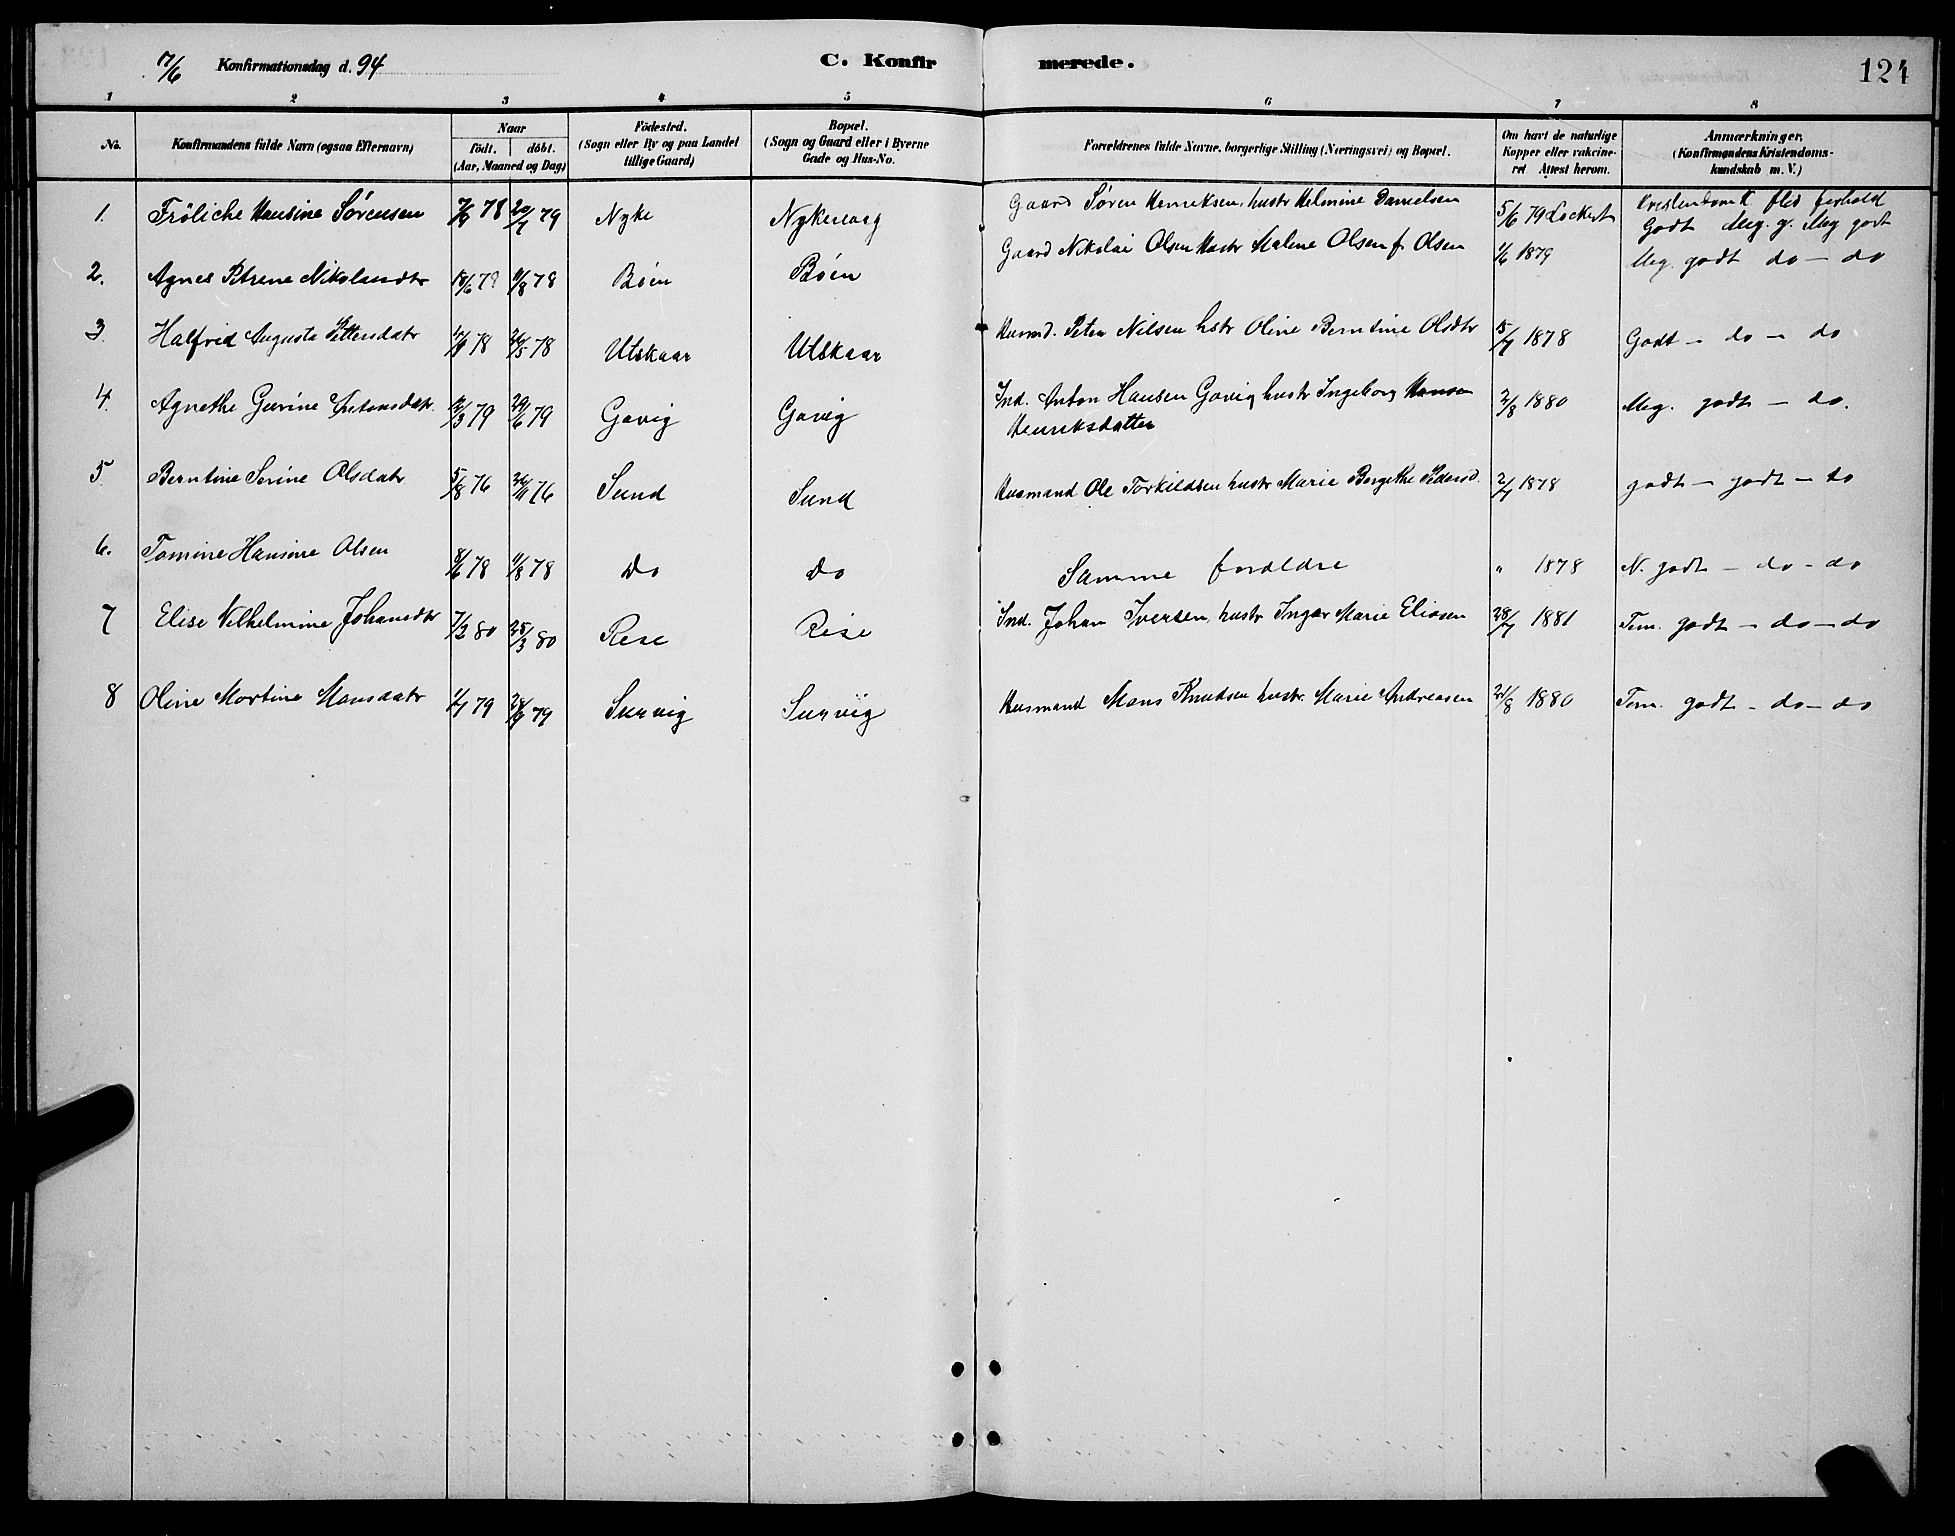 17/6 Konfirmationsdag d. 94 C. Konfirmerede. 124
1 2 3 4 5 6 7 8
No. Konfirmandens fulde Navn (ogsaa Efternavn) Naar födt. döbt. (Aar, Maaned og Dag) Födested. (Sogn eller By og paa Landet tillige Gaard) Bopæl. (Sogn og Gaard eller i Byerne Gade og Hus-No. Forældrenes fulde Navne, borgerlige Stilling (Næringsvei) og Bopæl. Om havt de naturlige Kopper eller vakcineret Attest herom. Anmærkninger. (Konfirmandens Kristendomskundskab m. V.)
Kristendomk flid forhold
1. Fröliche Hansine Sørensen 78 20/7 79 Nyke Nykevaag Gaard Søren Henriksen, hustr Helmine Danielsen 5/6 79 Lockert Godt Meg. g. Meg godt
2. Agnes Petrene Nikolaisdtr 11/8 78 Böen Böen Gaard Nikolai Olsen Hustr Malene Olsen f. Olsen 1/6 1879 Meg. godt do - do
3. Halfrid Augusta Pettersdatr 78 26/5 78 Utskaar Utskaar Husmd. Peter Nilsen hstr Oline Berntine Olsdtr 15/7 1878 Godt - do - do
4. Agnethe Gurine Antonsdatr. 12/3 79 29/6 79 Gavig Gavig Ind. Anton Hansen Gavig hustr Ingeborg Hansen
Henriksdatter 2/8 1880 Meg. godt - do.
5. Berntine Serine Olsdatr 5/8 76 26/11 76 Sund Sund Husmand Ole Torkildsen hustr Marie Bergethe Pedersd. 2/7 1878 godt - godt - do
6. Tomine Hansine Olsen 8/6 78 11/8 78 Do Do Samme foraldre " 1878 N. godt - do - do
7 Elise Vilhelmine Johansdtr 7/2 80 25/3 80 Rise Rise Ind. Johan Iversen, hustr Inger Marie Eliasen 28/7 1881 Tem. godt - do - do
8 Oline Martine Monsdatr 1/7 79 28/9 79 Survig Survig Husmand Mons Knudsen hustr. Marie Andreasen 21/8 1880 Tem. godt - do - do